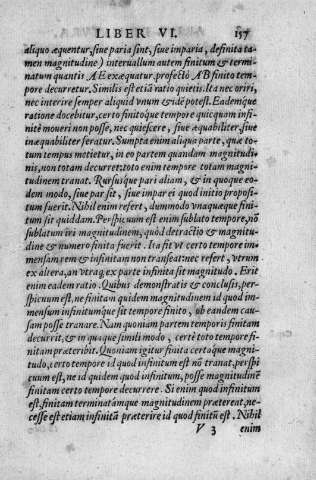 LIBER VI. 157
aliquo æquentur, siue paria sint, siue imparia, definita ta-
men magnitudine) interuallum autem finitum & termi-
natum quantis A E exæquatur. profectò A B finito tem-
pore decurretur. Similis est etiã ratio quietis. Ita nec oriri,
nec interire semper aliquid vnum & idē potest. Eademque
ratione docebitur, certo finitoq́ue tempore quicquam infi-
nitè moueri non posse, nec quiescere, siue æquabiliter, siue
inæquabiliter feratur. Sumpta enim aliqua parte, quæ to-
tum tempus metietur, in eo partem quandam magnitudi-
nis, non totam decurret: toto enim tempore totam magni-
tudinem tranat. Rursusq́ue pari aliam, & in quoque eo-
dem modo, siue par sit, siue impar ei quod initio proposi-
tum fuerit. Nihil enim refert, dummodo vnaquæque fini-
tum sit quiddam. Perspicuum est enim sublato tempore, nõ
sublatum iri magnitudinem, quòd detractio & magnitu-
dine & numero finita fuerit. Ita fit vt certo tempore im-
mensam rem & infinitam non transeat: nec refert, vtrum
ex altera, an vtraq; ex parte infinita sit magnitudo. Erit
enim eadem ratio. Quibus demonstratis & conclusis, per-
spicuum est, ne finitam quidem magnitudinem id quod im-
mensum infinitumq́ue sit tempore finito, ob eandem cau-
sam posse tranare. Nam quoniam partem temporis finitam
decurrit, & in quaque simili modo, certè toto tempore fini-
tam præteribit. Quoniam igitur finita certaq́ue magni-
tudo, certo tempore id quod infinitum est nõ tranat, perspi-
cuum est, ne id quidem quod infinitum, posse magnitudinē
finitam certo tempore decurrere. Si enim quod infinitum
est, finitam terminatámque magnitudinem prætereat, ne-
cesse est etiam infinitũ præterire id quod finitũ est. Nihil
V 3 enim